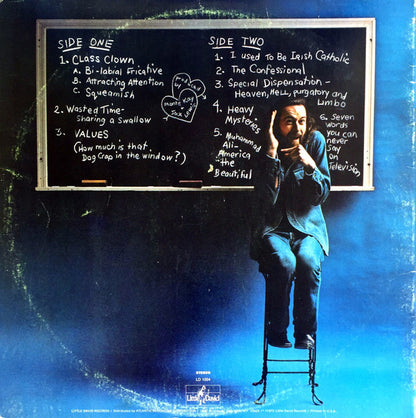 SIDE ONE
1. CLASS CLOWN
A. Bi-labial Fricative
B. Attracting Attention
C. Squeamish
2. Wasted Time-
sharing a swallow
3. VALUES
(How much is that
Dog Crap in the window?)
SIDE TWO
1. I used To Be Irish Catholic
2. The Confessional
3. Special Dispensation-
Heaven, Hell, purgatory and
Limbo
4. Heavy
Mysteries
5. Muhammad
Ali-
America
the
Beautiful
6. Seven
Words
you can
never
Say
on
Television
STEREO
LD 1004
Little David
LITTLE DAVID RECORDS